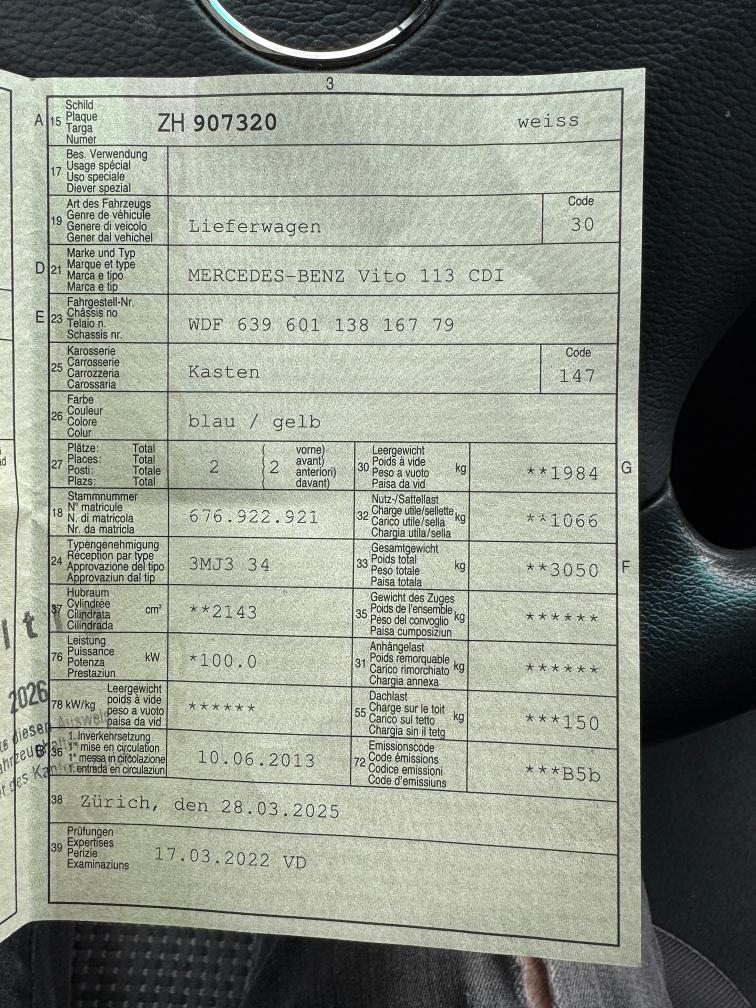 3
A 15 Schild
Plaque
Targa
Numer
ZH 907320 weiss
17 Bes. Verwendung
Usage spécial
Uso speciale
Diever spezial
19 Art des Fahrzeugs
Genre de véhicule
Genere di veicolo
Gener dal vehichel
Lieferwagen
Code
30
D 21 Marke und Typ
Marque et type
Marca e tipo
Marca e tip
MERCEDES-BENZ Vito 113 CDI
E 23 Fahrgestell-Nr.
Châssis no
Telaio n.
Schassis nr.
WDF 639 601 138 167 79
25 Karosserie
Carrosserie
Carrozzeria
Carossaria
Kasten
Code
147
26 Farbe
Couleur
Colore
Colur
blau / gelb
27 Plätze: Total
Places: Total
Posti: Totale
Plazs: Total
2
(2 vorne)
avant)
anteriori)
davant)
30 Leergewicht
Poids à vide
Peso a vuoto
Paisa da vid
kg
**1984
G
18 Stammnummer
N° matricule
N. di matricola
Nr. da matricla
676.922.921
32 Nutz-/Sattellast
Charge utile/sellette
Carico utile/sella
Chargia utila/sella
kg
**1066
24 Typengenehmigung
Réception par type
Approvazione del tipo
Approvaziun dal tip
3MJ3 34
33 Gesamtgewicht
Poids total
Peso totale
Paisa totala
kg
**3050
F
37 Hubraum
Cylindrée
Cilindrata
Cilindrada
cm³
**2143
35 Gewicht des Zuges
Poids de l'ensemble
Peso del convoglio
Paisa cumposiziun
kg
******
76 Leistung
Puissance
Potenza
Prestaziun
kW
*100.0
31 Anhängelast
Poids remorquable
Carico rimorchiato
Chargia annexa
kg
******
78 kW/kg Leergewicht
poids à vide
peso a vuoto
paisa da vid
******
55 Dachlast
Charge sur le toit
Carico sul tetto
Chargia sin il tetg
kg
***150
B 36 1. Inverkehrsetzung
1re mise en circulation
1a messa in circolazione
1. entrada en circulaziun
10.06.2013
72 Emissionscode
Code émissions
Codice emissioni
Code d'emissiuns
***B5b
38 Zürich, den 28.03.2025
39 Prüfungen
Expertises
Perizie
Examinaziuns
17.03.2022 VD
2026
diesen Ausweis
des